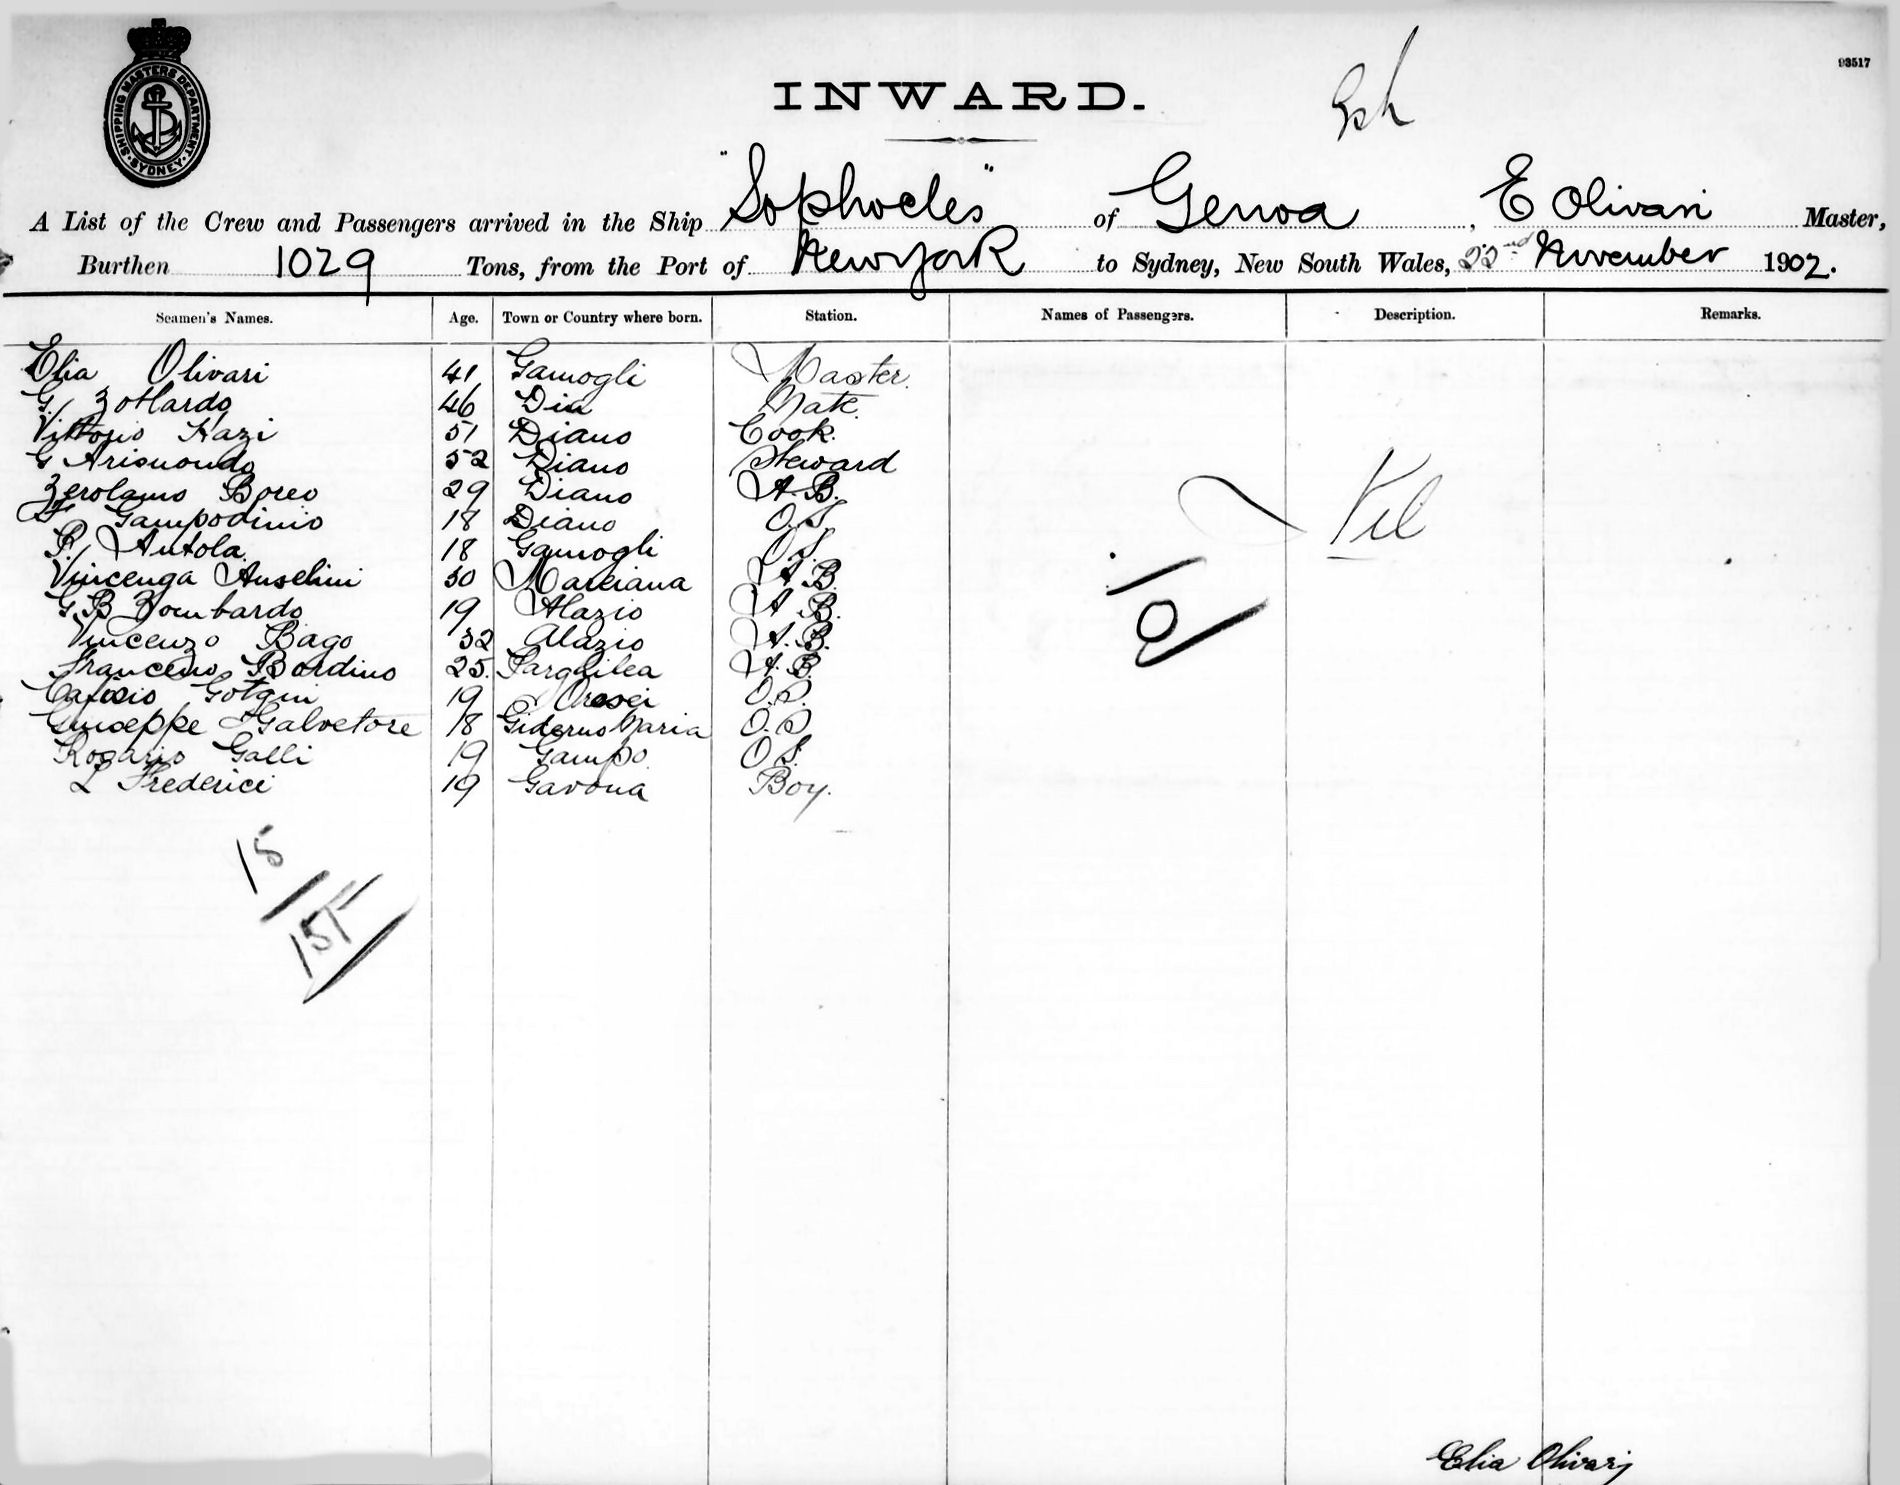 93517
SHIPPING MASTERS DEPARTMENT
SYDNEY
INWARD.
A List of the Crew and Passengers arrived in the Ship "Sophocles" of Genoa, E Olivari Master,
Burthen 1029 Tons, from the Port of New York to Sydney, New South Wales, 22nd November 1902.
Seamen's Names. Age. Town or Country where born. Station. Names of Passengers. Description. Remarks.
Elia Olivari 41 Gamogli Master.
G. Zollardo 46 Dia Mate.
Vittorio 51 Diano Cook.
G Arismondo 52 Diano Steward
Zerolamo Boreo 29 Diano A.B.
Gampodinio 18 Diano O.S.
P. Antola 18 Gamogli O.S.
Vincenga Anselini 30 Marciana A.B.
G B Zombardo 19 Alazio A.B.
Vincenzo Bago 32 Alazio A.B.
Francesco Bordino 25. Parghilea A.B.
19 Orosei O.S.
Giuseppe Salvetore 18 Maria O.S.
Rosario Galli 19 Gampo. O.S.
L Frederici 19 Gavona Boy.
Nil
15
15
Elia Olivari